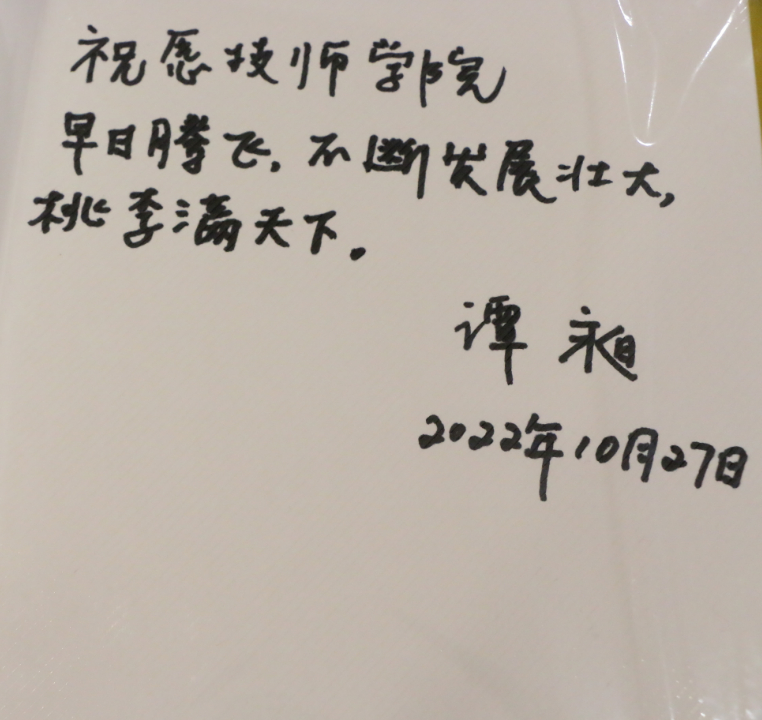 祝愿技师学院
早日腾飞，不断发展壮大，
桃李满天下。
谭昶
2022年10月27日